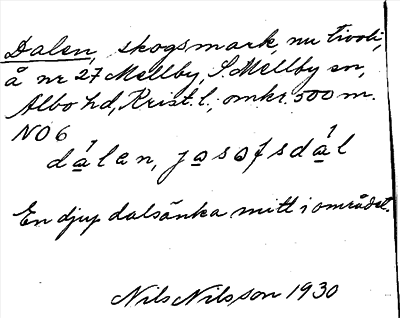 Dalen, skogsmark, nu tivoli,
å nr 27 Mellby, S. Mellby sn,
Albo hd, Krist. l., omkr. 500 m.
NO 6
dálen, josefsdál
En djup dalsänka mitt i området.
Nils Nilsson 1930